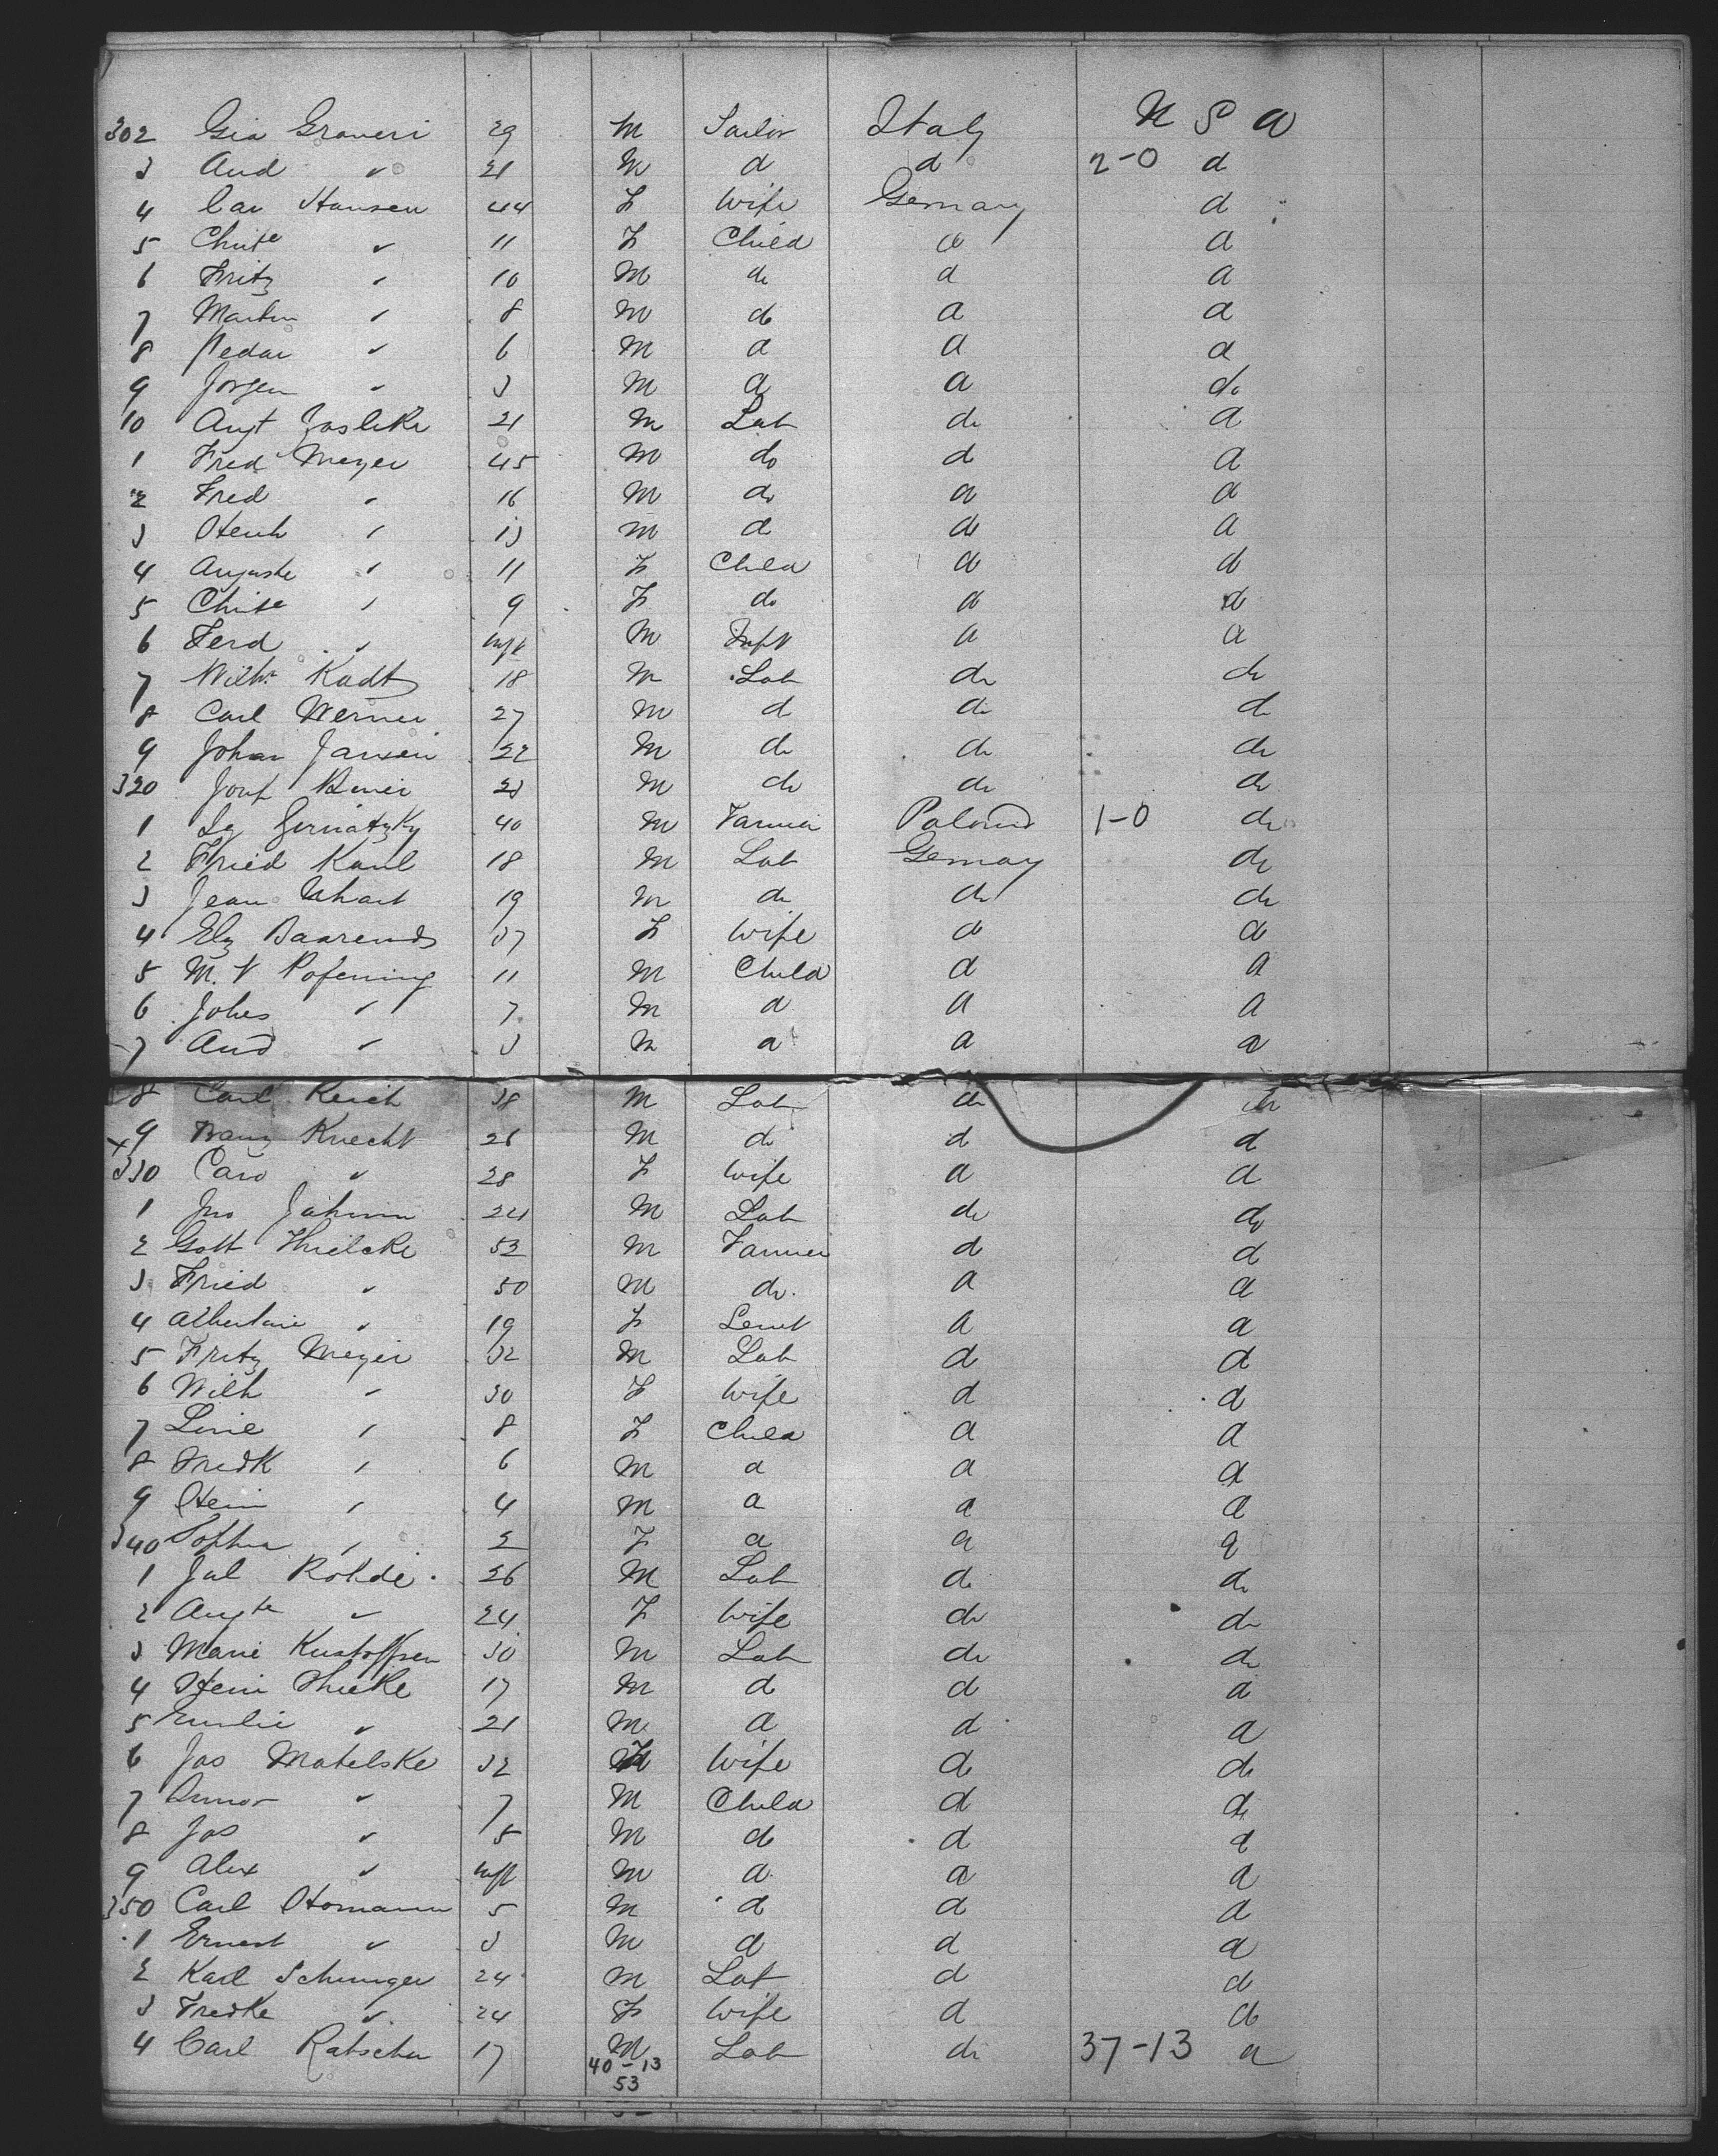 302 Gia Graveri 29 M Tailor Italy U S A
3 And " 21 M d d 2-0 d
4 Car Hansen 44 F Wife Germany d
5 Chrste " 11 F Child d d
6 Fritz " 10 M do d d
7 Martin " 8 M do d d
8 Pedar " 6 M d d d
9 Jorgen " 3 M d d do
10 Augt 21 M Lab do d
1 Fred Meyer 45 M do d d
2 Fred " 16 M do d d
3 Henh " 13 M d do d
4 Auguste " 11 F Child d d
5 Chrste " 9 F do d d
6 Ferd " inft M Inft d d
7 Wilh. Kadt 18 M Lab do do
8 Carl Werner 27 M d do d
9 Johan Jansen 22 M do do do
320 Josef 23 M do do do
1 40 M Farmer Poland 1-0 do
2 Fried Karl 18 M Lab Germany do
3 Jean Uhart 19 M do do do
4 Elz Baarends 37 F Wife d d
5 M. V 11 M Child d d
6 Johes " 7 M d d d
7 And " 3 M d d d
8 Carl Reich 38 M Lab do do
x 9 Franz Knecht 26 M do d d
330 Caro " 28 F Wife d d
1 Jno 24 M Lab do do
2 Gott Thielcke 53 M Farmer d d
3 Fried " 50 M do d d
4 Albertine " 19 F Servt d d
5 Fritz Meyer 32 M Lab d d
6 Wilh " 30 F Wife d d
7 Line " 8 F Child d d
8 Fredk " 6 M d d d
9 Hein " 4 M d d d
340 Sophia " 2 F d d d
1 Jul Rohde 26 M Lab do do
2 Augte " 24 F Wife do do
3 Marie Kustoffsen 30 M Lab do do
4 Hein Thielke 17 M d d d
5 Emilie " 21 M d d d
6 Jos Matelske 32 F Wife d do
7 " 7 M Child d do
8 Jos " 5 M do d d
9 Alex " inft M d d d
350 Carl Homann 5 M d d d
1 Ernest " 3 M d d d
2 Karl Schunger 24 M Lab d d
3 Fredke " 24 F Wife d do
4 Carl Ratscher 17 M Lab do 37-13 d
40-13
53